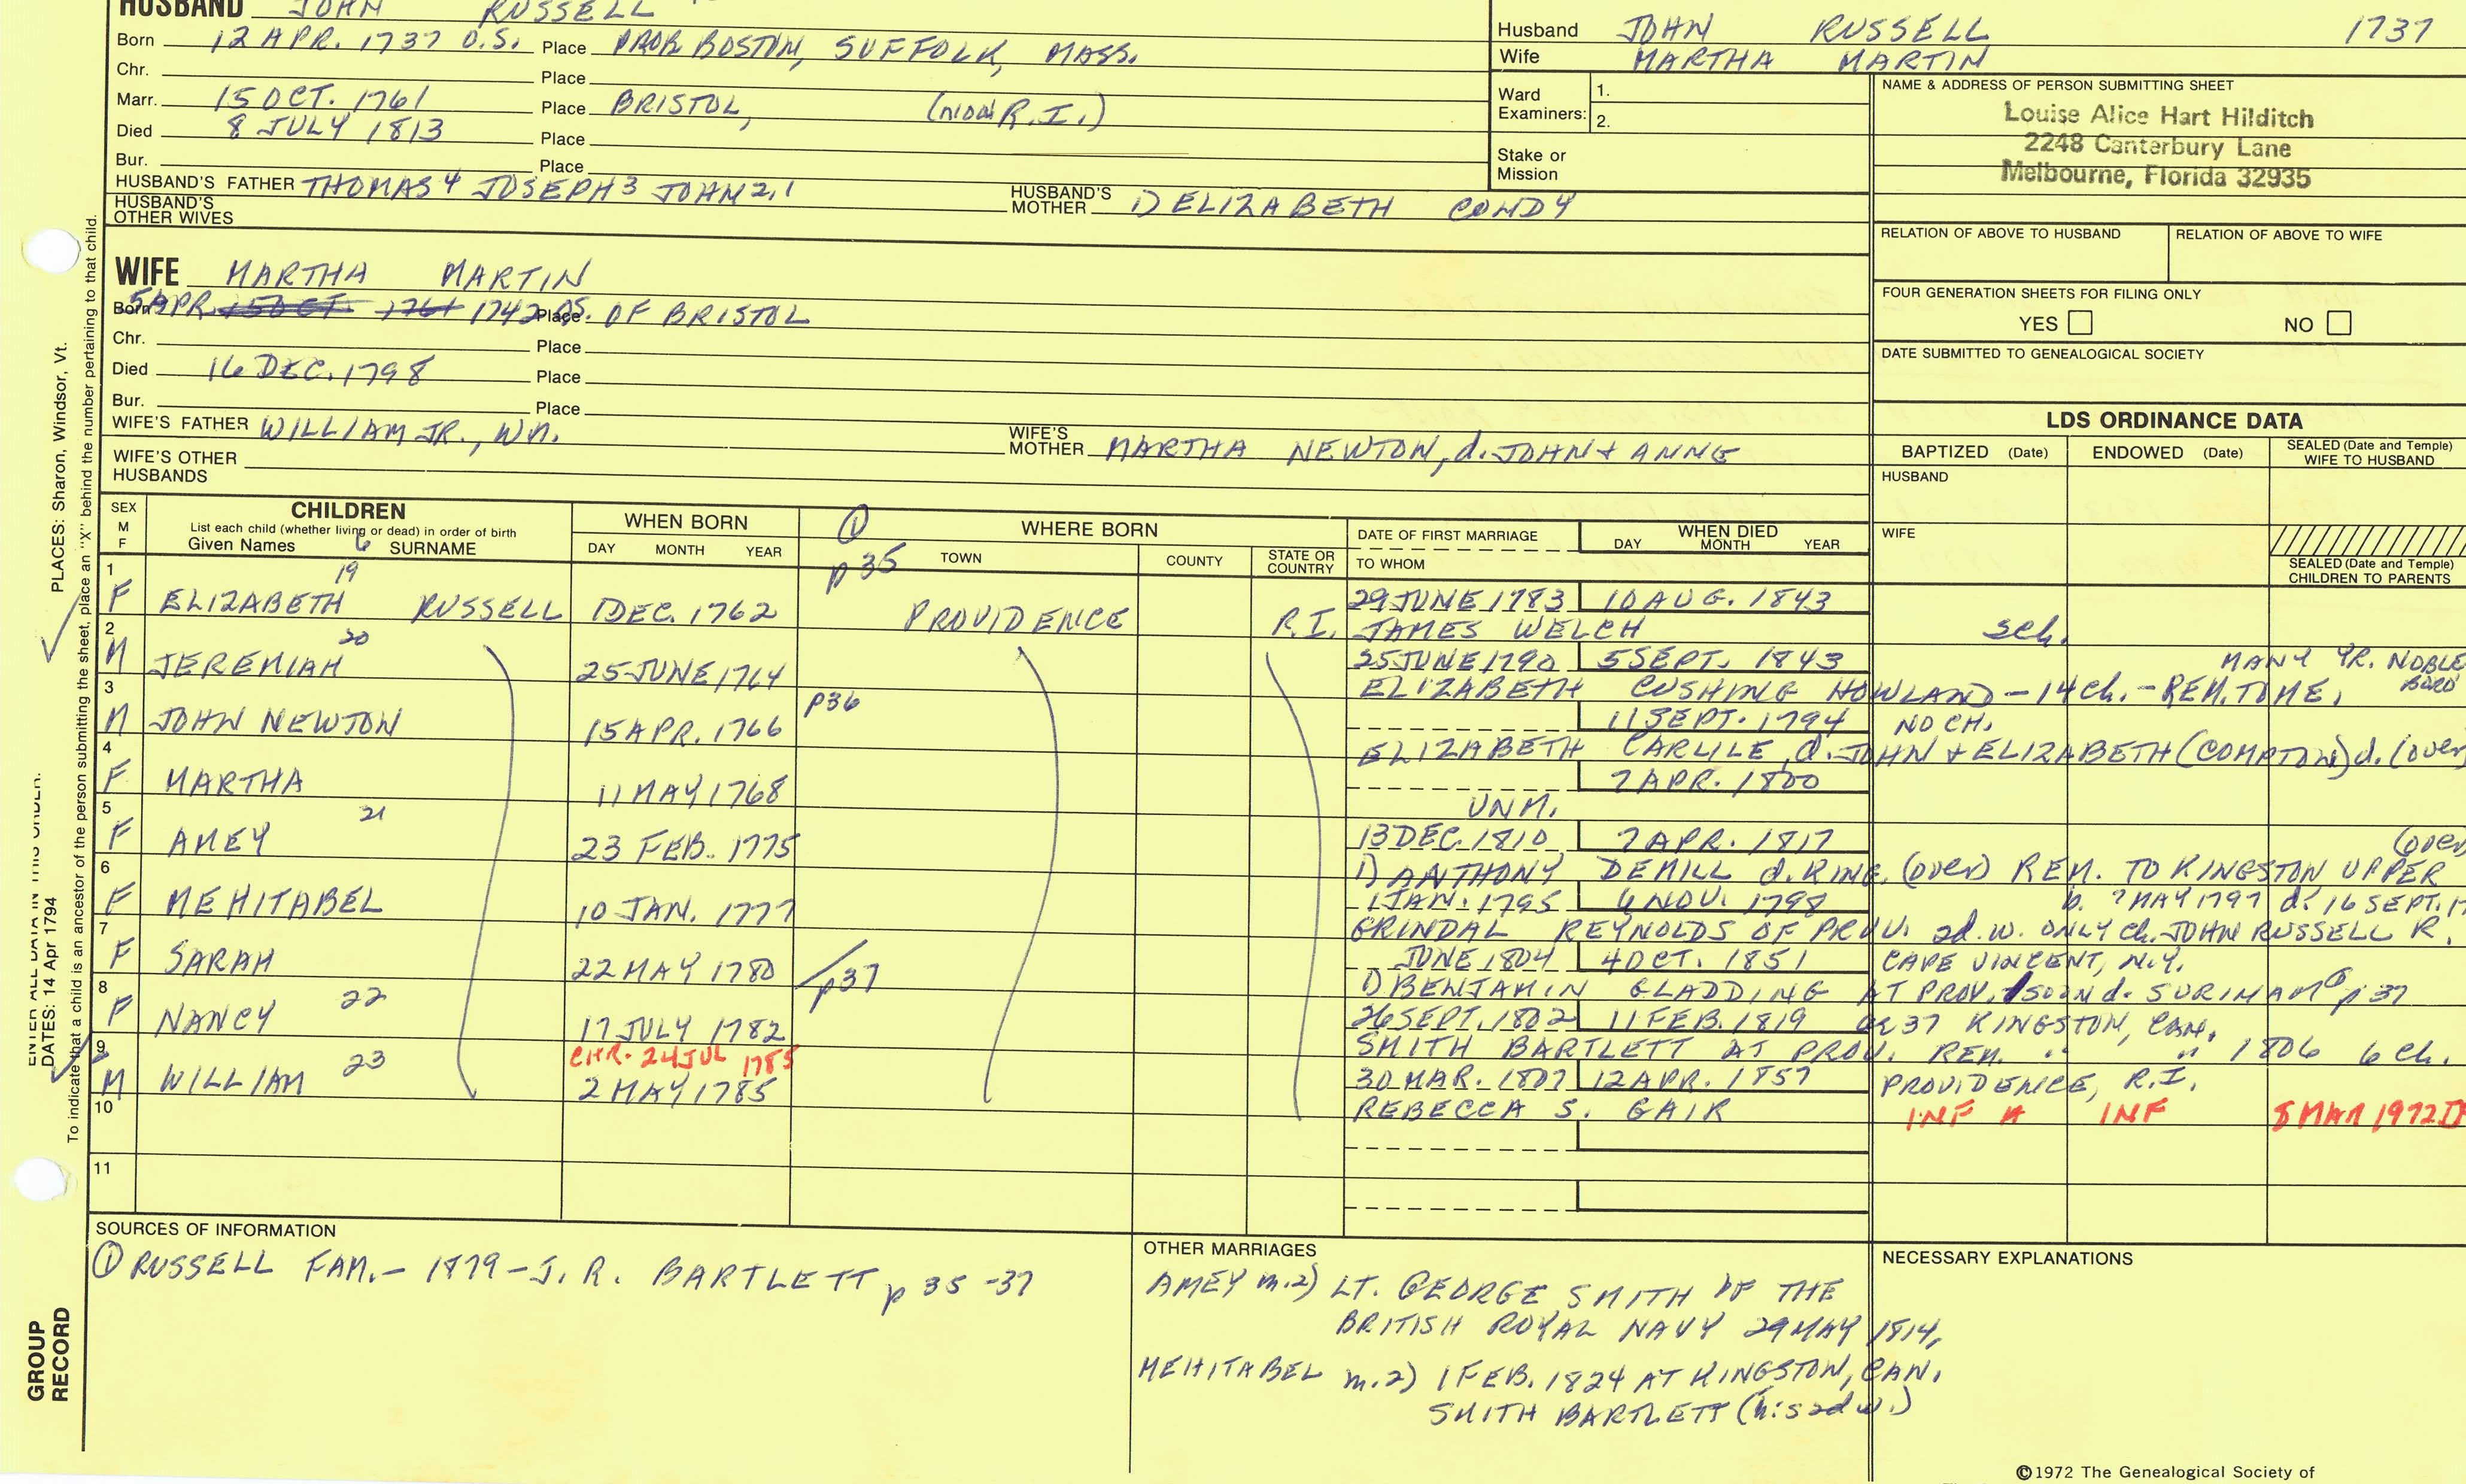 HUSBAND JOHN RUSSELL
Born 12 APR. 1737 O.S. Place PROB BOSTON, SUFFOLK, MASS.
Chr. Place
Marr. 15 OCT. 1761 Place BRISTOL, (now R.I.)
Died 8 JULY 1813 Place
Bur. Place
HUSBAND'S FATHER THOMAS4 JOSEPH3 JOHN2,1
HUSBAND'S MOTHER 1) ELIZABETH CONDY
HUSBAND'S OTHER WIVES
Husband JOHN RUSSELL 1737
Wife MARTHA MARTIN
Ward Examiners: 1.
2.
Stake or Mission
NAME & ADDRESS OF PERSON SUBMITTING SHEET
Louise Alice Hart Hilditch
2248 Canterbury Lane
Melbourne, Florida 32935
RELATION OF ABOVE TO HUSBAND
RELATION OF ABOVE TO WIFE
FOUR GENERATION SHEETS FOR FILING ONLY
YES NO
DATE SUBMITTED TO GENEALOGICAL SOCIETY
WIFE MARTHA MARTIN
Born 5 APR. 15 OCT 1761 1742 O.S. Place OF BRISTOL
Chr. Place
Died 16 DEC. 1798 Place
Bur. Place
WIFE'S FATHER WILLIAM JR., Wm.
WIFE'S MOTHER MARTHA NEWTON, d. JOHN + ANNE
WIFE'S OTHER HUSBANDS
LDS ORDINANCE DATA
BAPTIZED (Date) ENDOWED (Date) SEALED (Date and Temple) WIFE TO HUSBAND
HUSBAND
WIFE
SEALED (Date and Temple) CHILDREN TO PARENTS
SEX M F
CHILDREN
List each child (whether living or dead) in order of birth
Given Names 6 SURNAME
WHEN BORN
DAY MONTH YEAR
① p 35
WHERE BORN
TOWN COUNTY STATE OR COUNTRY
DATE OF FIRST MARRIAGE
TO WHOM
WHEN DIED
DAY MONTH YEAR
1 F ELIZABETH 19 RUSSELL 1 DEC. 1762 PROVIDENCE R.I. 29 JUNE 1783 10 AUG. 1843
JAMES WELCH 5 ch.
2 M JEREMIAH 20 25 JUNE 1764 25 JUNE 1790 5 SEPT. 1843 MANY YR. NOBLE BORO
ELIZABETH CUSHING HOWLAND - 14 ch. - REM. TO ME.
3 M JOHN NEWTON 15 APR. 1766 p36 11 SEPT. 1794 NO CH.
ELIZABETH CARLILE, d. JOHN + ELIZABETH (COMPTON) d. (over
4 F MARTHA 11 MAY 1768 7 APR. 1800
UNM.
5 F AMEY 21 23 FEB. 1775 13 DEC. 1810 7 APR. 1817 (over
1) ANTHONY DEMILL d. KING. (over) REM. TO KINGSTON UPPER
6 F MEHITABEL 10 JAN. 1777 1 JAN. 1795 6 NOV. 1798 b. 7 MAY 1797 d. 16 SEPT. 17
GRINDAL REYNOLDS OF PROV. 2d. w. ONLY ch. JOHN RUSSELL R.
7 F SARAH 22 MAY 1780 p37 JUNE 1804 4 OCT. 1851 CAPE VINCENT, N.Y.
1) BENJAMIN GLADDING AT PROV. soon d. SURINAM p 37
8 F NANCY 22 17 JULY 1782 26 SEPT. 1802 11 FEB. 1819 ae 37 KINGSTON, CAN.
SMITH BARTLETT AT PROV. REM. " " 1806 6 ch.
CHR. 24 JUL 1785
9 M WILLIAM 23 2 MAY 1785 30 MAR. 1807 12 APR. 1857 PROVIDENCE, R.I.
REBECCA S. GAIR INF INF 8 MAR 1972
10
11
SOURCES OF INFORMATION
① RUSSELL FAM. - 1879 - J. R. BARTLETT p 35 -37
OTHER MARRIAGES
AMEY m.2) LT. GEORGE SMITH OF THE
BRITISH ROYAL NAVY 29 MAY 1814,
MEHITABEL m.2) 1 FEB. 1824 AT KINGSTON, CAN.
SMITH BARTLETT (his 2d w.)
NECESSARY EXPLANATIONS
©1972 The Genealogical Society of
PLACES: Sharon, Windsor, Vt.
To indicate that a child is an ancestor of the person submitting the sheet, place an "X" behind the number pertaining to that child.
ENTER ALL DATA IN THIS ORDER:
DATES: 14 Apr 1794
GROUP
RECORD